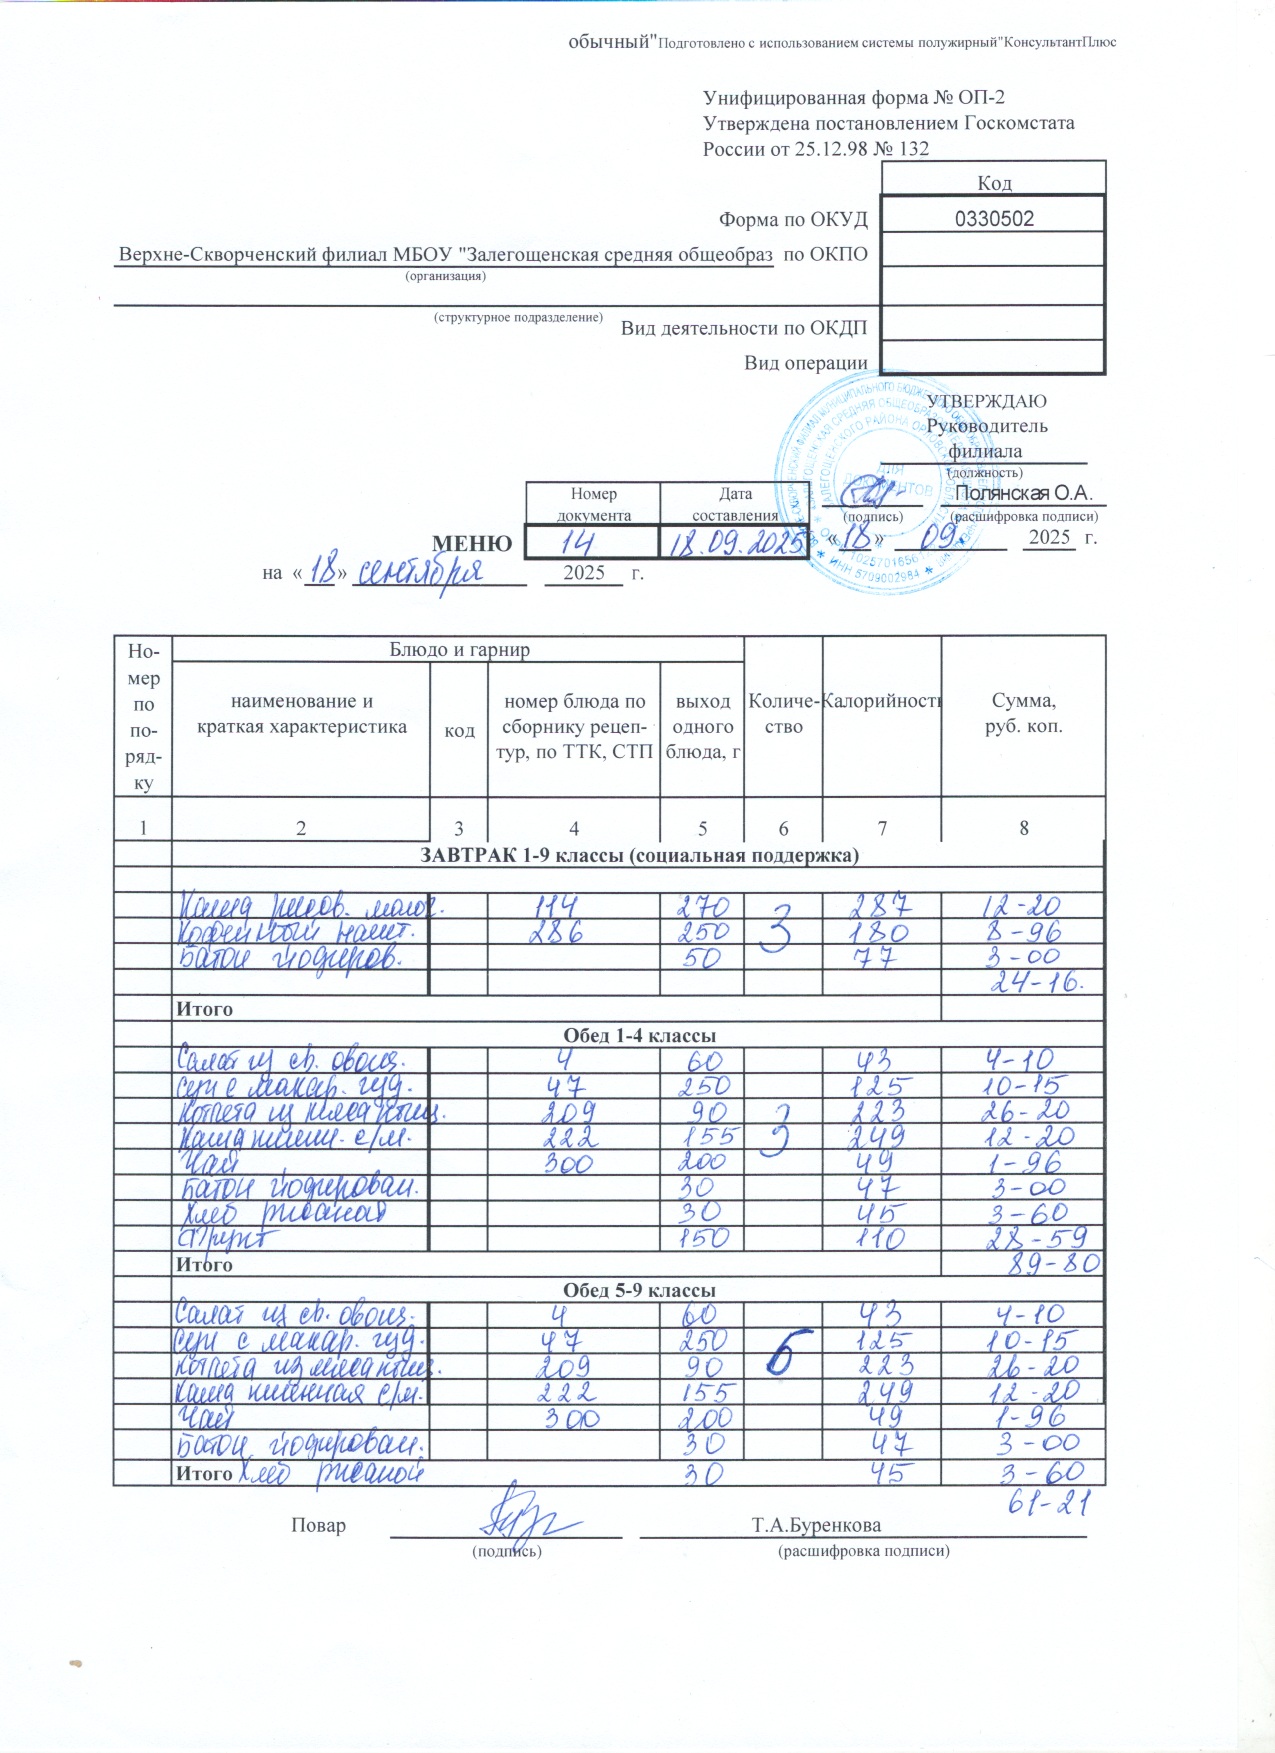 обычный"Подготовлено с использованием системы полужирный"КонсультантПлюс
Унифицированная форма № ОП-2
Утверждена постановлением Госкомстата
России от 25.12.98 № 132
Код
Форма по ОКУД 0330502
Верхне-Скворченский филиал МБОУ "Залегощенская средняя общеобраз по ОКПО
(организация)
(структурное подразделение)
Вид деятельности по ОКДП
Вид операции
УТВЕРЖДАЮ
Руководитель
филиала
(должность)
Полянская О.А.
(подпись) (расшифровка подписи)
«18» 09. 2025 г.
Номер документа Дата составления
МЕНЮ 14 18.09.2025
на «18» сентября 2025 г.
ДЛЯ ДОКУМЕНТОВ
ИНН 5709002984
Но-мер по по-ряд-ку Блюдо и гарнир Количе-ство Калорийность Сумма, руб. коп.
наименование и краткая характеристика код номер блюда по сборнику рецеп-тур, по ТТК, СТП выход одного блюда, г
1 2 3 4 5 6 7 8
ЗАВТРАК 1-9 классы (социальная поддержка)
Каша рисов. молоч. 114 270 287 12-20
Кофейный напит. 286 250 3 180 8-96
Батон йодиров. 50 77 3-00
24-16.
Итого
Обед 1-4 классы
Салат из св. овощ. 4 60 43 4-10
Суп с макар. изд. 47 250 125 10-15
Котлета из мяса птиц. 209 90 223 26-20
Каша пшен. с/м. 222 155 3 249 12-20
Чай 300 200 49 1-96
Батон йодирован. 30 47 3-00
Хлеб ржаной 30 45 3-60
Фрукт 150 110 28-59
Итого 89-80
Обед 5-9 классы
Салат из св. овощ. 4 60 43 4-10
Суп с макар. изд. 47 250 125 10-15
Котлета из мяса птиц. 209 90 6 223 26-20
Каша пшенная с/м. 222 155 249 12-20
Чай 300 200 49 1-96
Батон йодирован. 30 47 3-00
Итого Хлеб ржаной 30 45 3-60
61-21
Повар Т.А.Буренкова
(подпись) (расшифровка подписи)